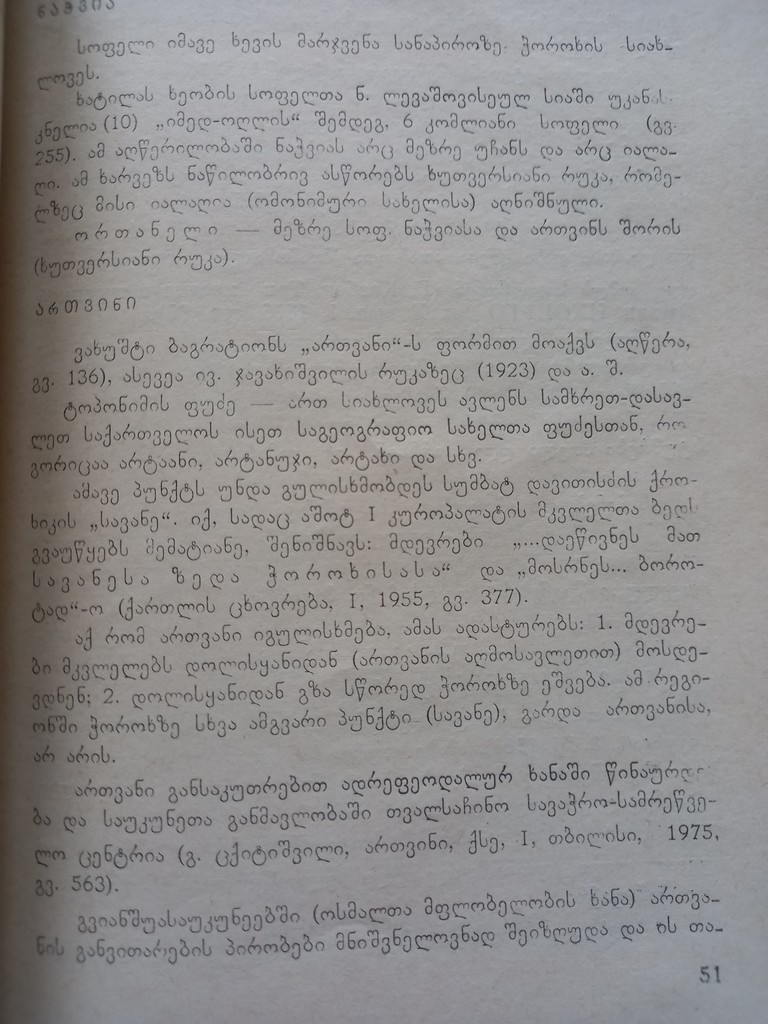 ნაჭვია
სოფელი იმავე ხევის მარჯვენა სანაპიროზე. ჭოროხის სიახ-
ლოვეს.
ხატილას ხეობის სოფელთა ნ. ლევაშოვისეულ სიაში უკანას-
კნელია (10) „იმედ-ოღლის“ შემდეგ, 6 კომლიანი სოფელი (გვ.
255). ამ აღწერილობაში ნაჭვიას არც მეზრე უჩანს და არც იალა-
ღი. ამ ხარვეზს ნაწილობრივ ასწორებს ხუთვერსიანი რუკა, რომე-
ლზეც მისი იალაღია (ომონიმური სახელისა) აღნიშნული.
ორთანელი — მეზრე სოფ. ნაჭვიასა და ართვინს შორის
(ხუთვერსიანი რუკა).
ართვინი
ვახუშტი ბაგრატიონს „ართვანი“-ს ფორმით მოაქვს (აღწერა,
გვ. 136), ასევეა ივ. ჯავახიშვილის რუკაზეც (1923) და ა. შ.
ტოპონიმის ფუძე — ართ სიახლოვეს ავლენს სამხრეთ-დასავ-
ლეთ საქართველოს ისეთ საგეოგრაფიო სახელთა ფუძესთან, რო-
გორიცაა არტაანი, არტანუჯი, არტახი და სხვ.
ამავე პუნქტს უნდა გულისხმობდეს სუმბატ დავითისძის ქრო-
ნიკის „სავანე“. იქ, სადაც აშოტ I კუროპალატის მკვლელთა ბედს
გვაუწყებს მემატიანე, შენიშნავს: მდევრები „...დაეწივნეს მათ
სავანესა ზედა ჭოროხისასა“ და „მოსრნეს... ბორო-
ტად“-ო (ქართლის ცხოვრება, I, 1955, გვ. 377).
აქ რომ ართვანი იგულისხმება, ამას ადასტურებს: 1. მდევრე-
ბი მკვლელებს დოლისყანიდან (ართვანის აღმოსავლეთით) მოსდე-
ვდნენ; 2. დოლისყანიდან გზა სწორედ ჭოროხზე ეშვება. ამ რეგი-
ონში ჭოროხზე სხვა ამგვარი პუნქტი (სავანე), გარდა ართვანისა,
არ არის.
ართვანი განსაკუთრებით ადრეფეოდალურ ხანაში წინაურდე-
ბა და საუკუნეთა განმავლობაში თვალსაჩინო სავაჭრო-სამრეწვე-
ლო ცენტრია (გ. ცქიტიშვილი, ართვინი, ქსე, I, თბილისი, 1975,
გვ. 563).
გვიანშუასაუკუნეებში (ოსმალთა მფლობელობის ხანა) ართვა-
ნის განვითარების პირობები მნიშვნელოვნად შეიზღუდა და ის თა-
51